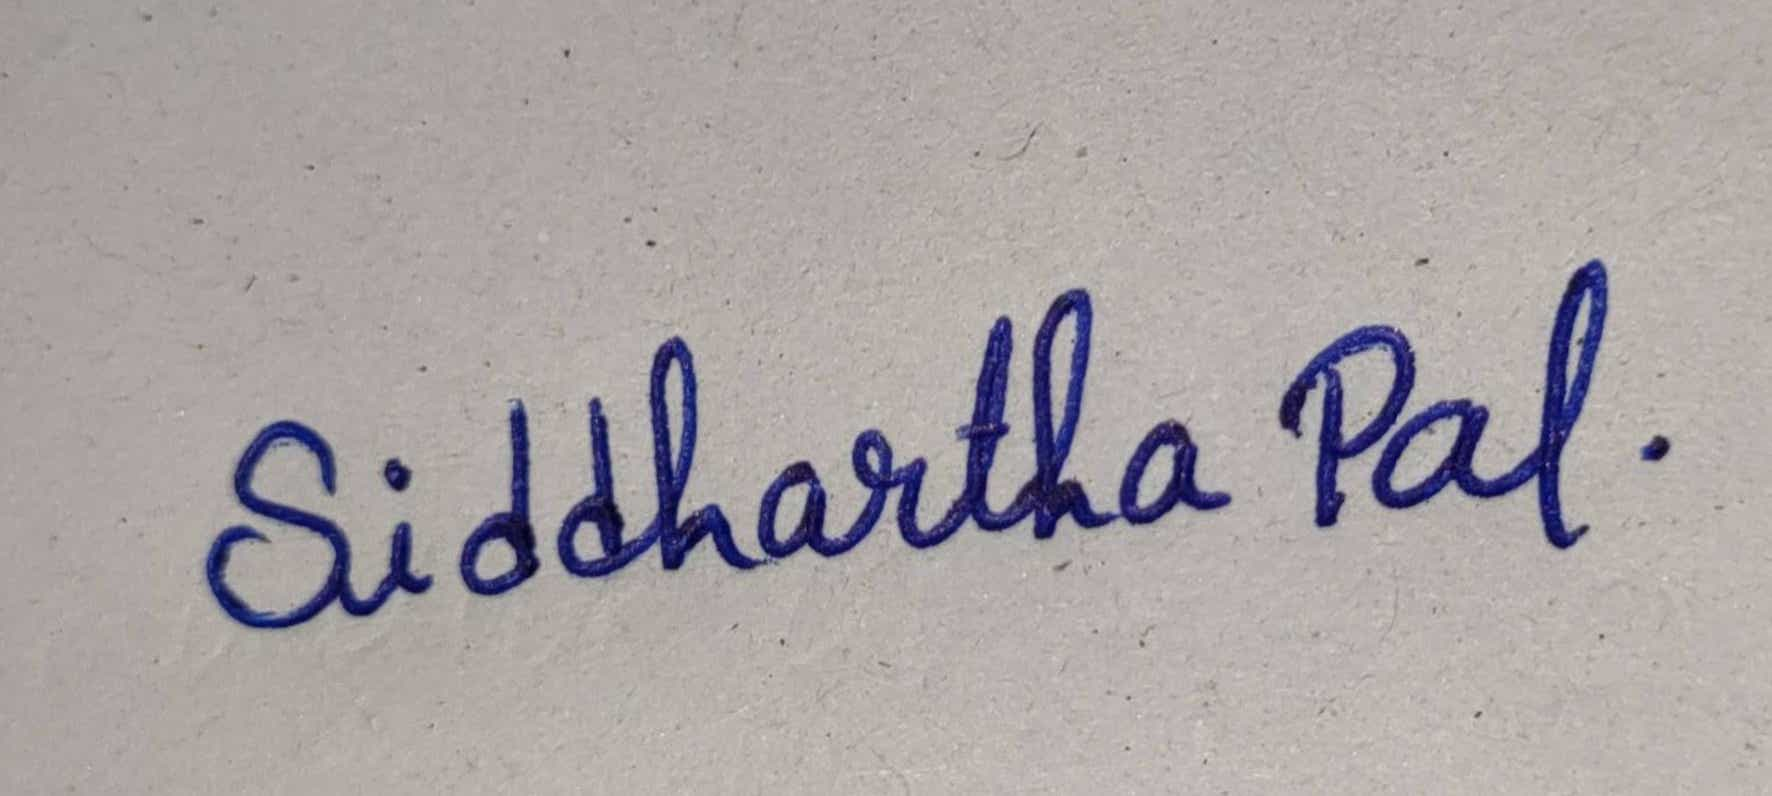 Siddhartha Pal.